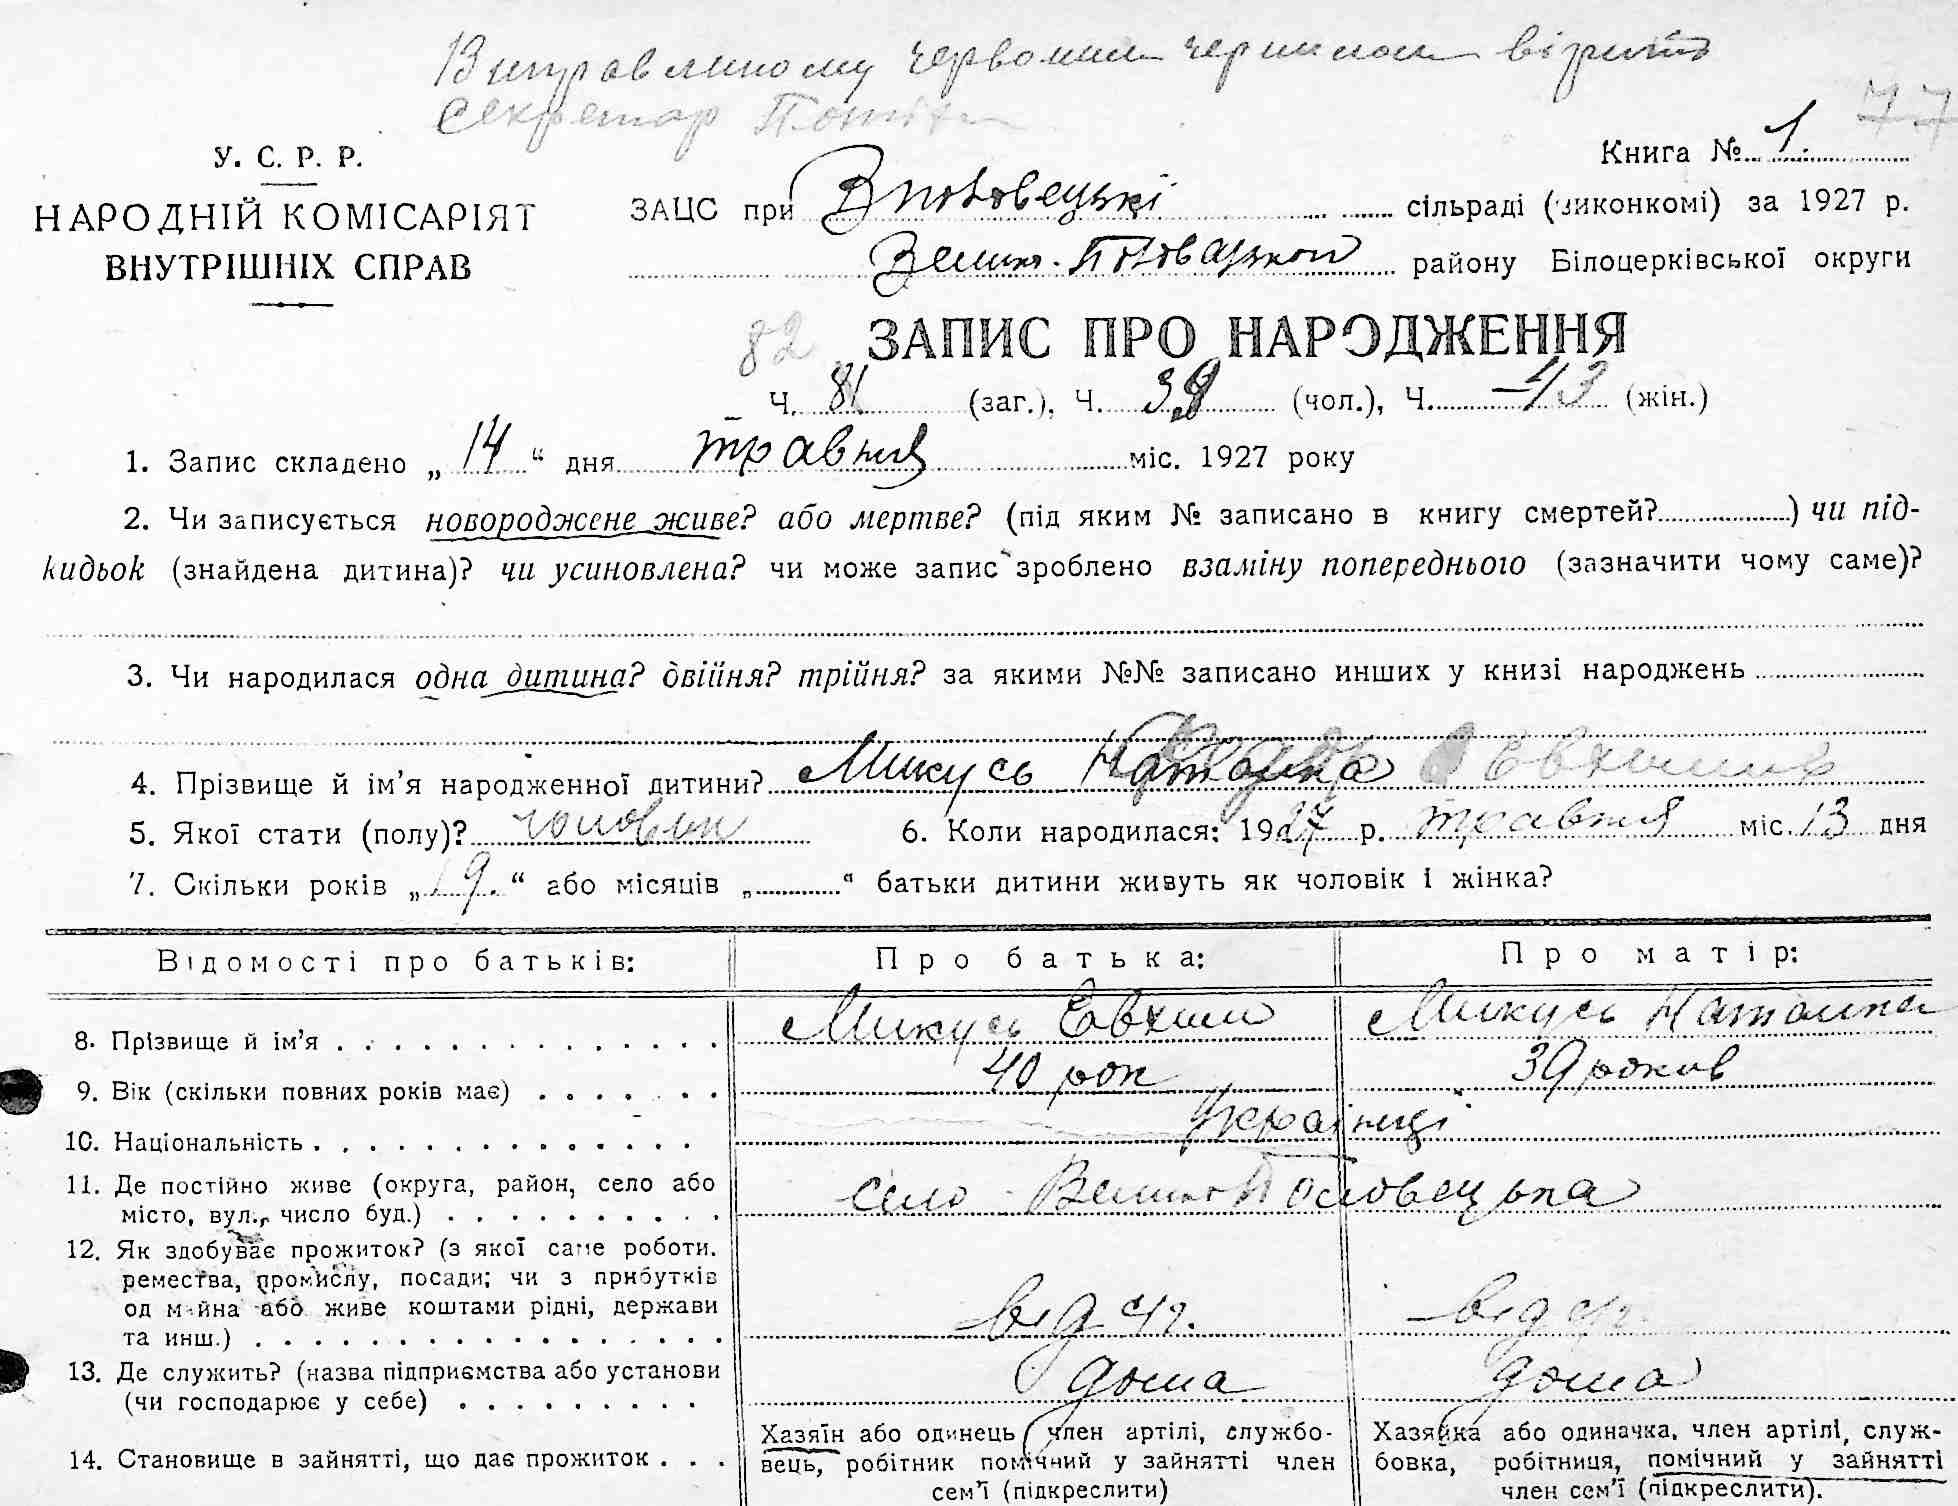 Виправленому червоним чернилом вірити
Секретар
77
У. С. Р. Р.
НАРОДНІЙ КОМІСАРІЯТ
ВНУТРІШНІХ СПРАВ
Книга № 1.
ЗАЦС при В Половецькі сільраді (виконкомі) за 1927 р.
Велико-Половецькой району Білоцерківської округи
82 ЗАПИС ПРО НАРОДЖЕННЯ
Ч. 81 (заг.), Ч. 39 (чол.), Ч. 43 (жін.)
1. Запис складено „14“ дня травня міс. 1927 року
2. Чи записується новороджене живе? або мертве? (під яким № записано в книгу смертей?) чи під-
кидьок (знайдена дитина)? чи усиновлена? чи може запис зроблено взаміну попереднього (зазначити чому саме)?
3. Чи народилася одна дитина? двійня? трійня? за якими №№ записано инших у книзі народжень
4. Прізвище й ім’я народженної дитини? Микусь Наталка
5. Якої стати (полу)? чоловік 6. Коли народилася: 1927 р. травня міс. 13 дня
7. Скільки років „19.“ або місяців „“ батьки дитини живуть як чоловік і жінка?
Відомості про батьків: Про батька: Про матір:
8. Прізвище й ім’я Микусь Евхим Микусь Наталка
9. Вік (скільки повних років має) 40 рок 39 роков
10. Національність Українці
11. Де постійно живе (округа, район, село або
місто, вул., число буд.) село Велико Половецька
12. Як здобуває прожиток? (з якої саме роботи.
ремества, промислу, посади; чи з прибутків
од майна або живе коштами рідні, держави
та инш.) від с/г. від с/г.
13. Де служить? (назва підприємства або установи
(чи господарює у себе) дома дома
14. Становище в зайнятті, що дає прожиток
Хазяїн або одинець, член артілі, службо-
вець, робітник помічний у зайнятті член
сем’ї (підкреслити)
Хазяйка або одиначка, член артілі, служ-
бовка, робітниця, помічний у зайнятті
член сем’ї (підкреслити).